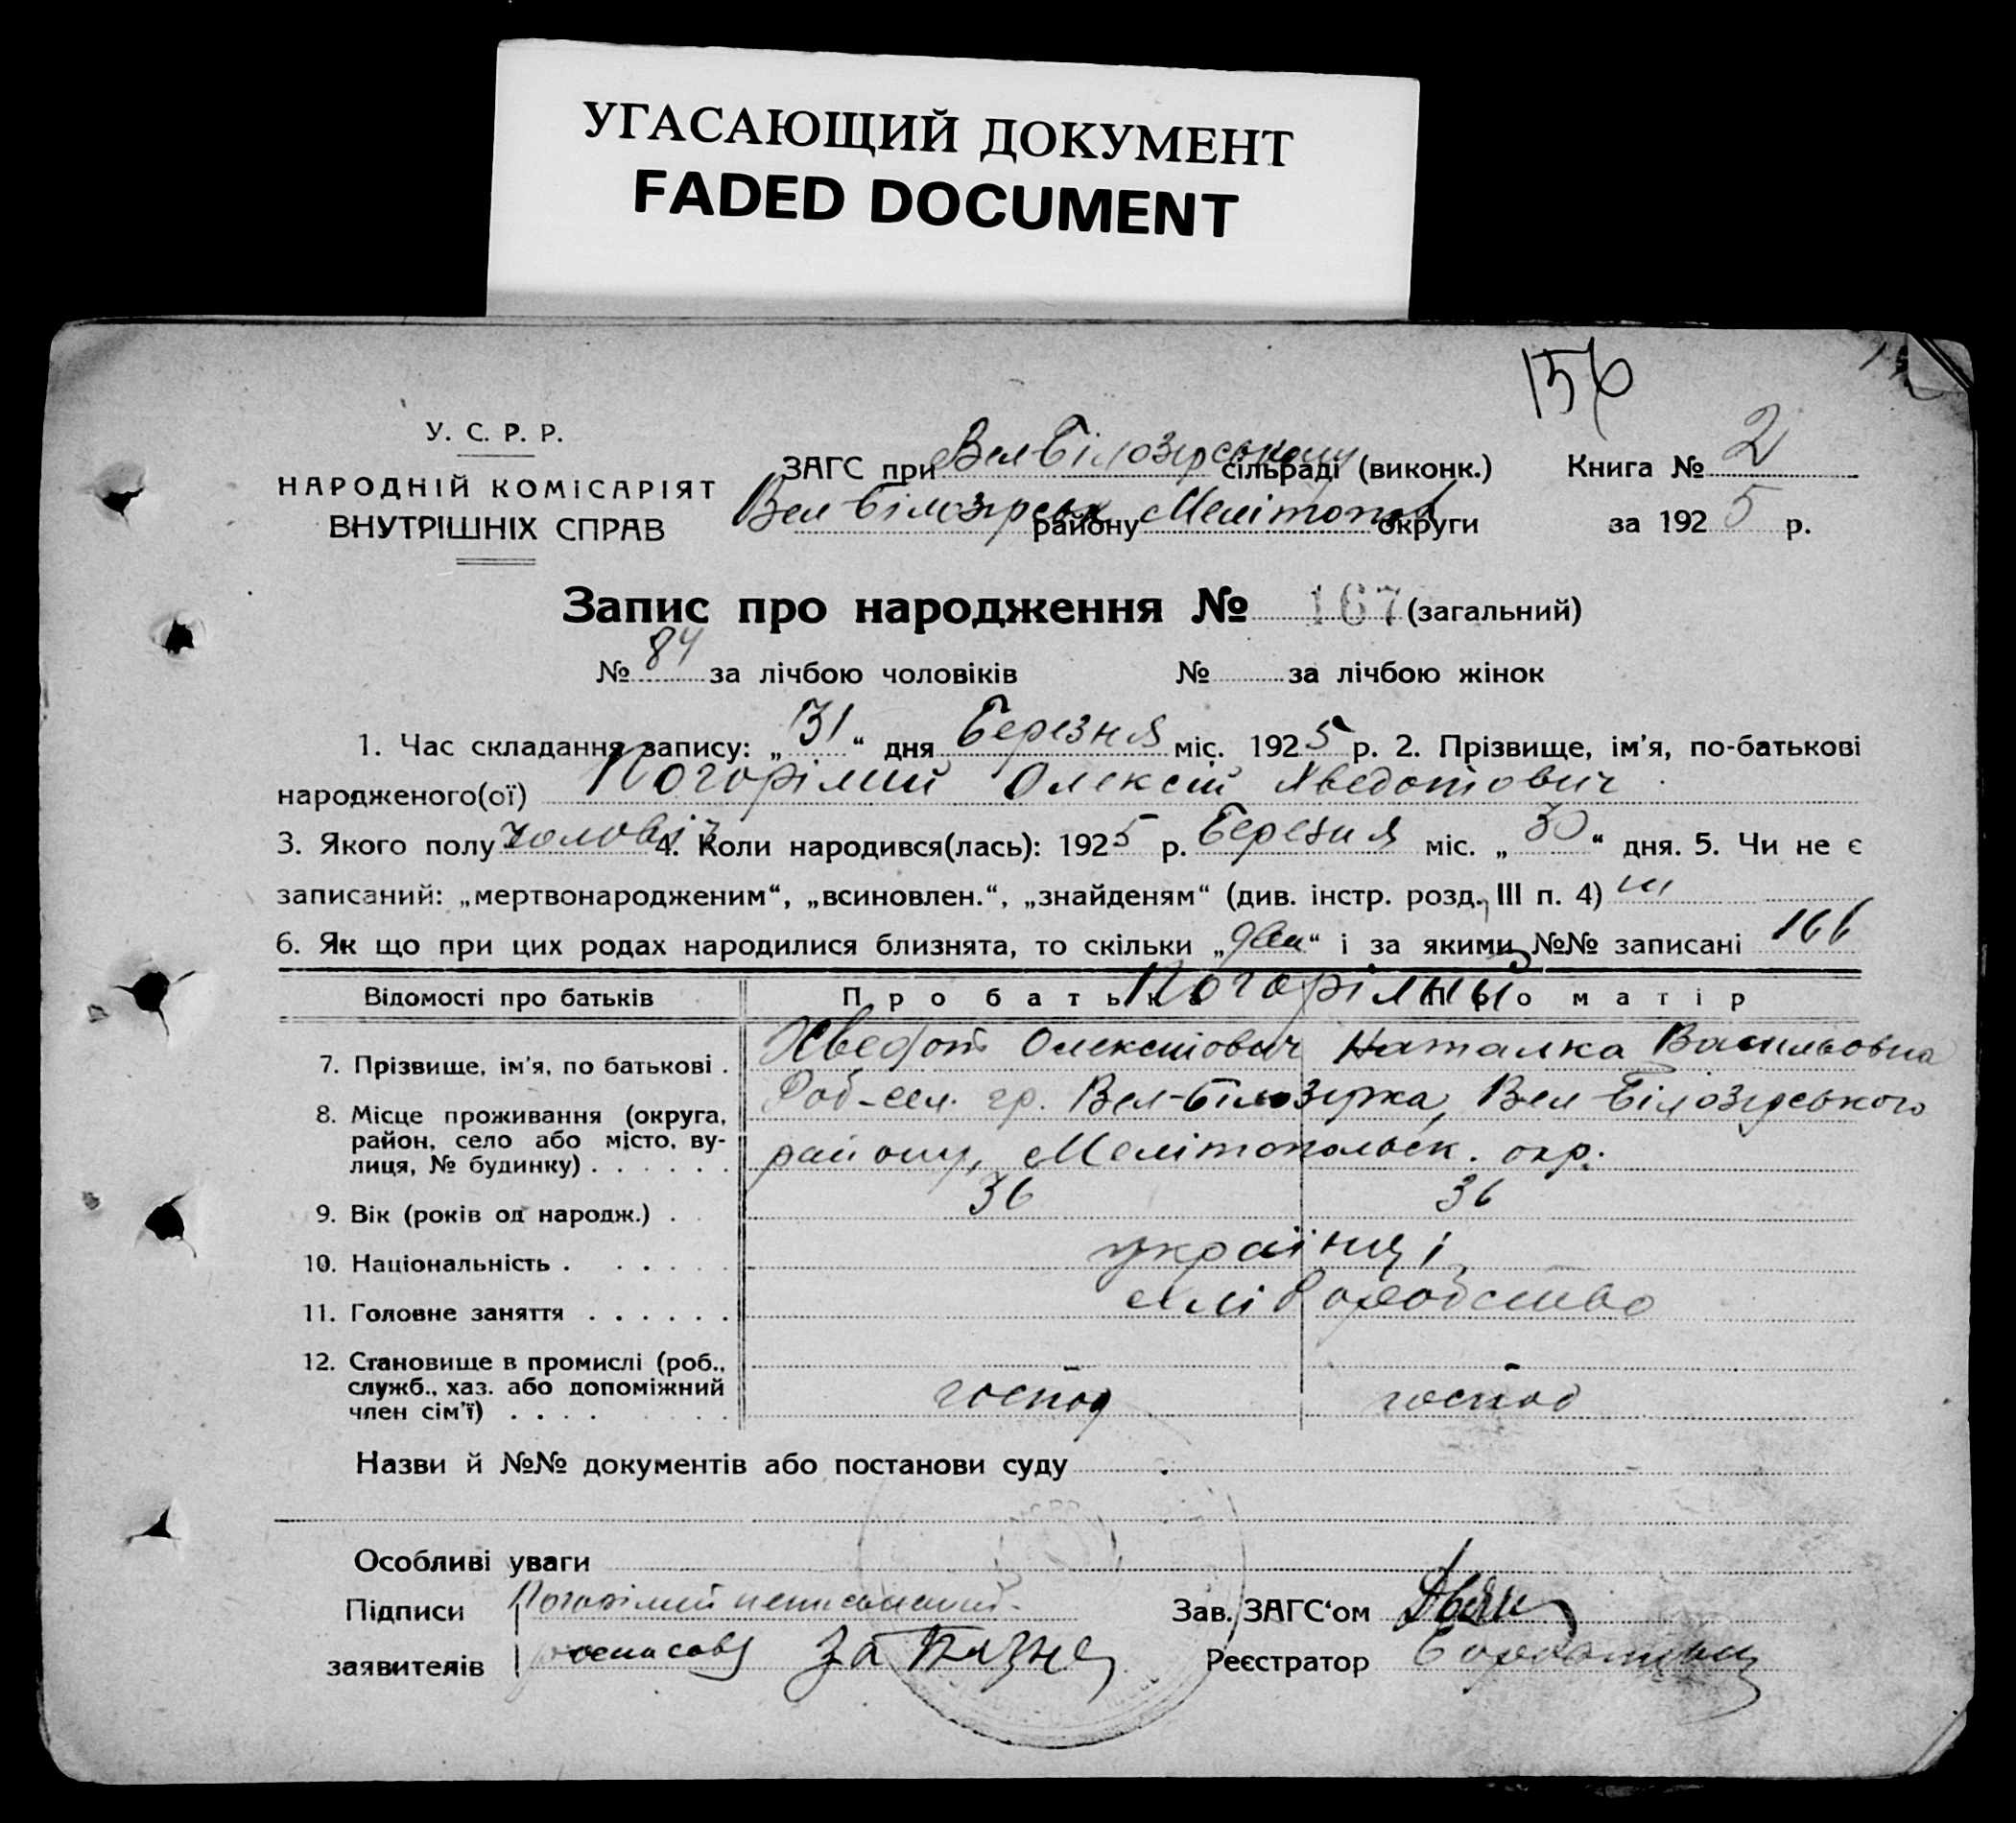 УГАСАЮЩИЙ ДОКУМЕНТ
FADED DOCUMENT
156
У. С. Р. Р.
НАРОДНІЙ КОМІСАРІЯТ
ВНУТРІШНІХ СПРАВ
ЗАГС при Вел Білозірському сільраді (виконк.) Книга № 2
Вел Білозірськ району Мелітопов округи за 1925 р.
Запис про народження № 167 (загальний)
№ 84 за лічбою чоловіків № за лічбою жінок
1. Час складання запису: „31“ дня Березня міс. 1925 р. 2. Прізвище, ім'я, по-батькові
народженого(ої) Погорілий Олексій Хведотович
3. Якого полу чоловіч 4. Коли народився(лась): 1925 р. Березня міс. „30“ дня. 5. Чи не є
записаний: „мертвонародженим“, „всиновлен.“, „знайденям“ (див. інстр. розд. III п. 4) ні
6. Як що при цих родах народилися близнята, то скільки „два“ і за якими №№ записані 166
Відомості про батьків Про батька Про матір
Погорільні
7. Прізвище, ім'я, по батькові . Хведот Олексійович Наталка Васильовна
8. Місце проживання (округа, район, село або місто, вулиця, № будинку) . . . . . . Вел-Білозірка, Вел Білозірського
району, Мелітопольськ. окр.
9. Вік (років од народж.) . 36 36
10. Національність . . . . . . українці
11. Головне заняття . . . . . . хліборобство
12. Становище в промислі (роб., служб., хаз. або допоміжний член сім'ї) . . . . господ господ
Назви й №№ документів або постанови суду
Особливі уваги
Підписи Погорілий неписьменний Зав. ЗАГС'ом
заявителів росписавсь за Реєстратор